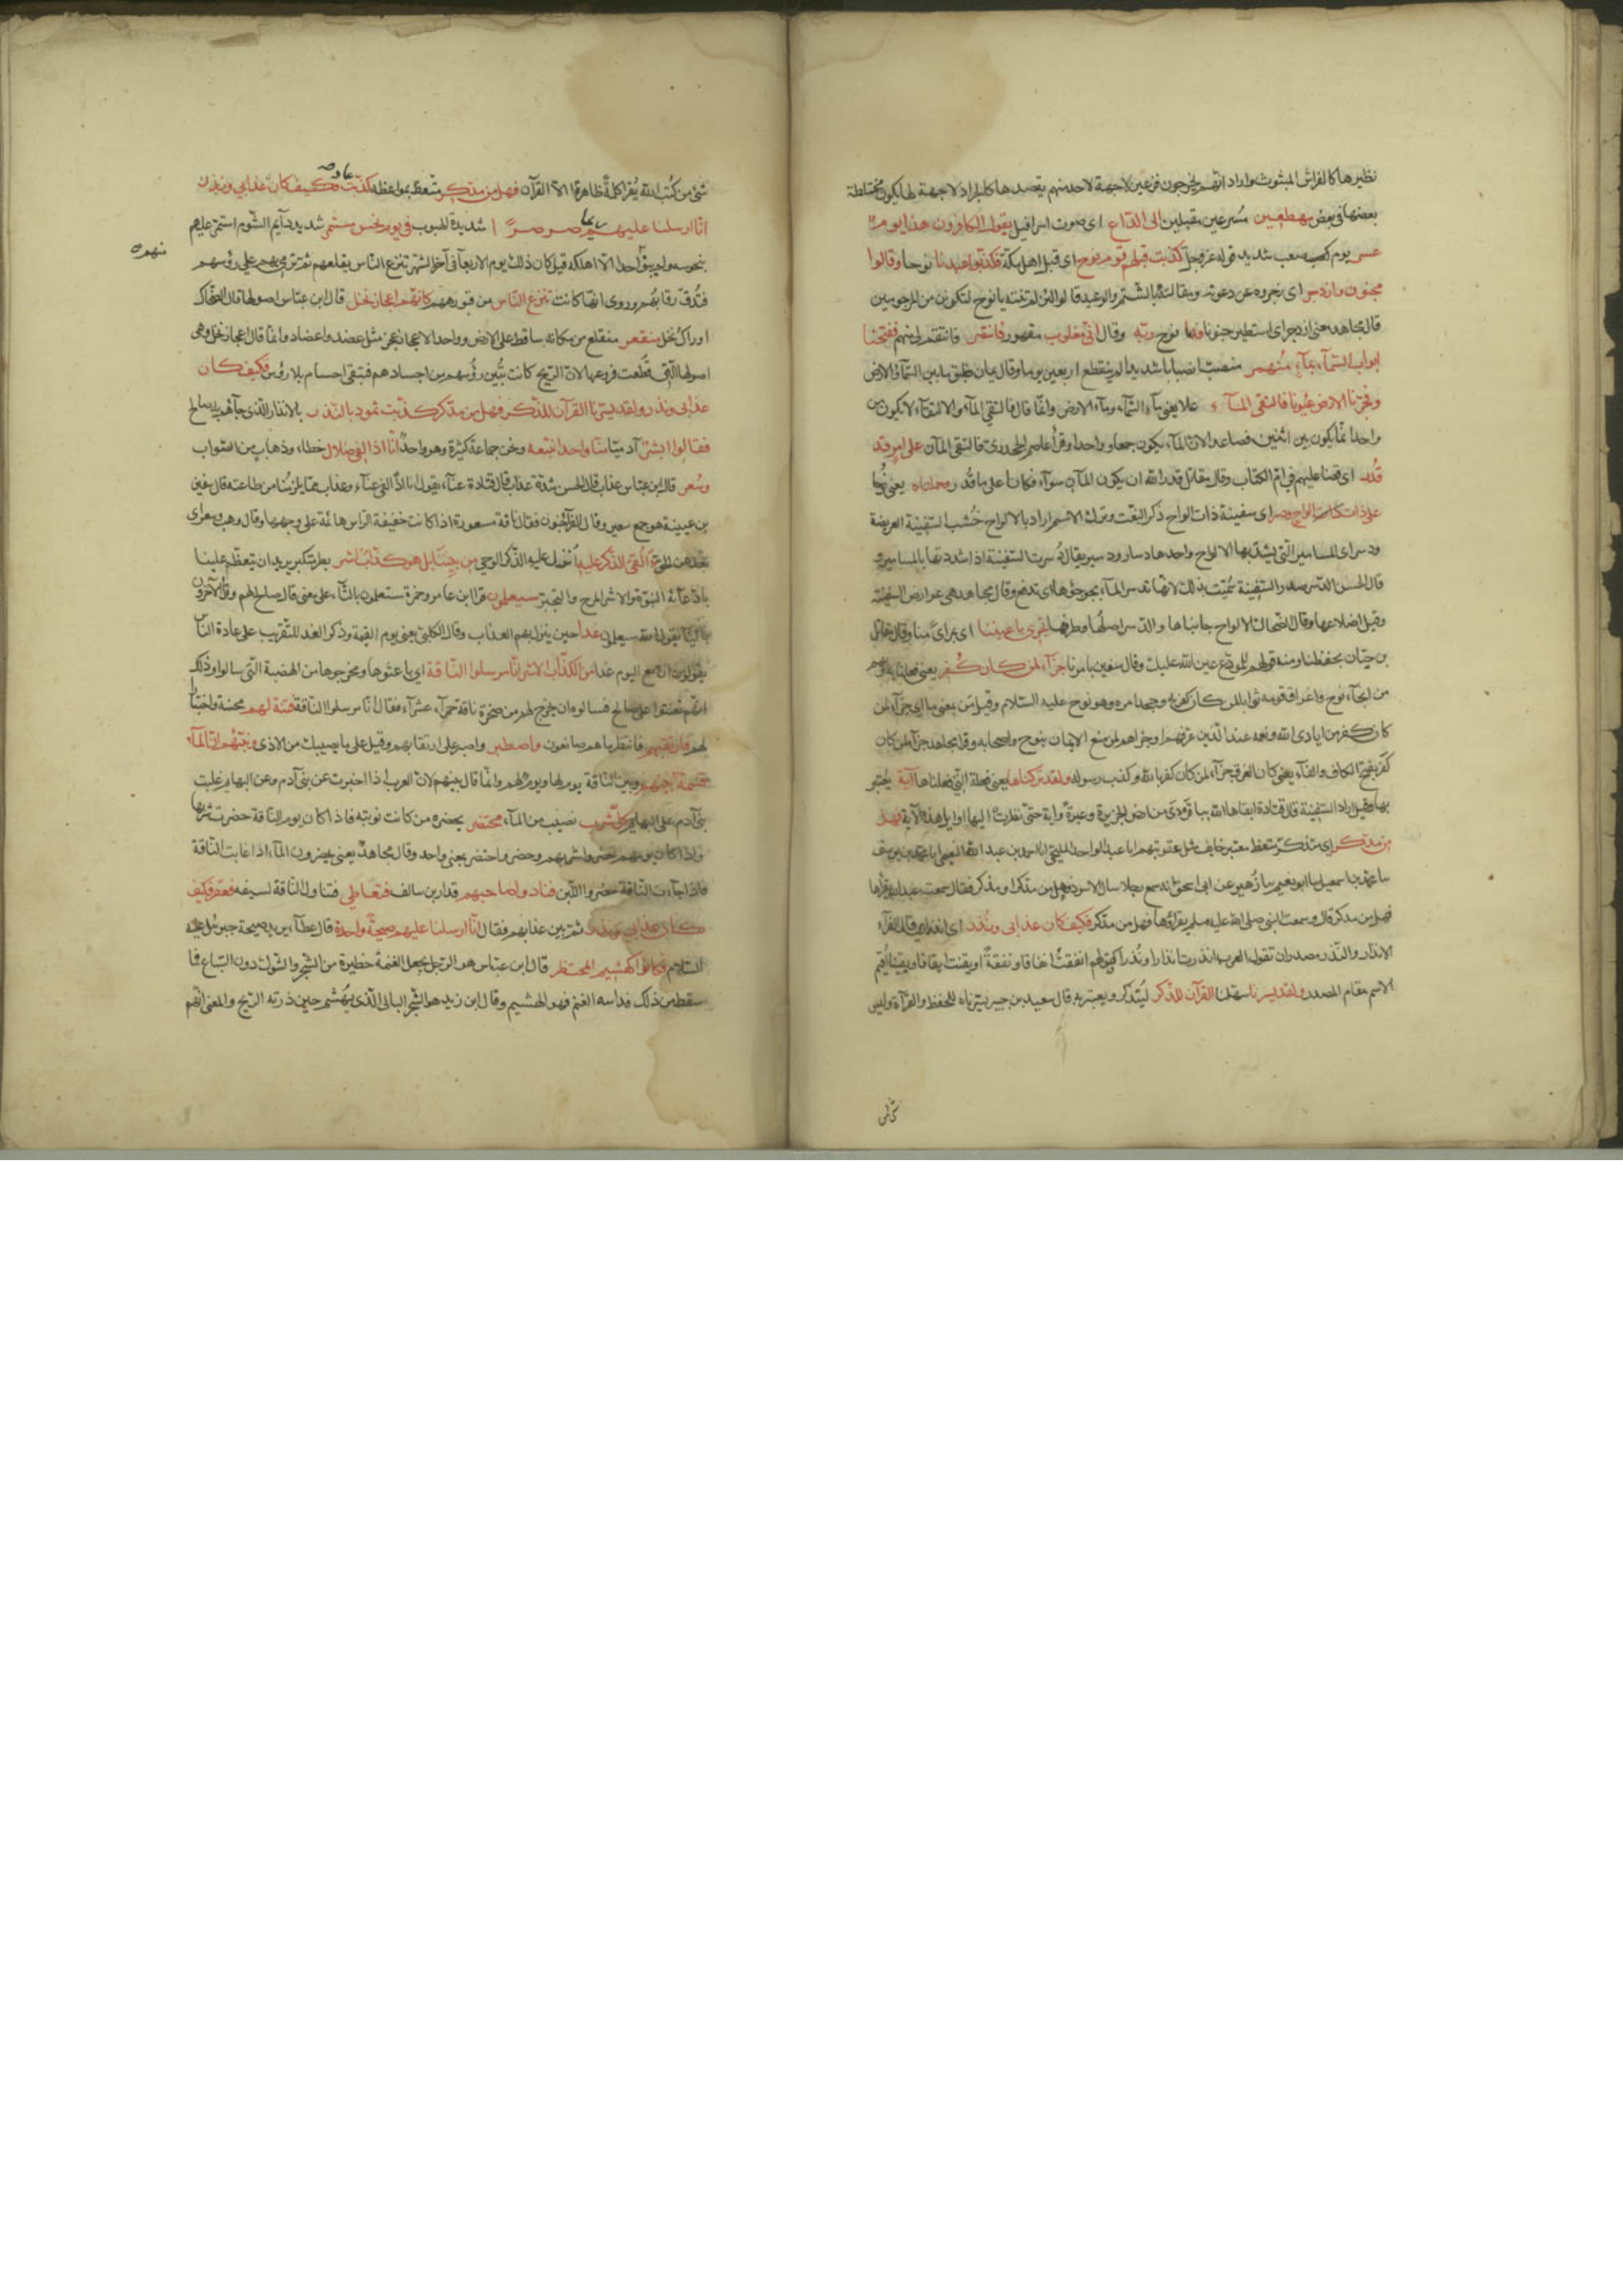 نظيرها كالفراش المبثوث واراد انهم يخرجون فزعين لاجهة لاحد منهم يقصدها كالجراد لاجهة لها يكون مختلطة
بعضها في بعض مهطعين مسرعين مقبلين الى الداع اى صوت اسرافيل يقول الكافرون هذا يوم
عسر يوم صعب شديد قوله عز وجل كذبت قبلهم قوم نوح اى قبل اهل مكة فكذبوا عبدنا نوحا وقالوا
مجنون وازدجر اى زجروه عن دعوته ومقالته بالشتم والوعيد قالوا لئن لم تنته يا نوح لتكونن من المرجومين
قال مجاهد معنى ازدجر اى استطير جنونا فدعا نوح ربه وقال انى مغلوب مقهور فانتصر فانتقم لى منهم ففتحنا
ابواب السمآء بمآء منهمر منصب انصبابا شديدا لم ينقطع اربعين يوما وقال يمان طبق ما بين السمآء والارض
وفجرنا الارض عيونا فالتقى المآء يعنى مآء السمآء ومآء الارض وانما قال فالتقى المآء والالتقآء لا يكون من
واحد انما يكون بين اثنين فصاعدا لان المآء يكون جمعا وواحدا وقرأ عاصم الجحدرى فالتقى المآان على امر قد
قدر اى قضى عليهم فى ام الكتاب وقال مقاتل قدر الله ان يكون المآان سوآء فكانا على ما قدر وحملناه يعنى نوحا
على ذات الواح ودسر اى سفينة ذات الواح ذكر النعت وترك الاسم اراد بالالواح خشب السفينة العريضة
ودسر اى المسامير التى يشد بها الالواح واحدها دسار ودسير يقال دسرت السفينة اذا شددتها بالمسامير
قال الحسن الدسر صدر السفينة سميت بذلك لانها تدسر المآء بجوجؤها اى تدفع وقال مجاهد هى عوارض السفينة
وقيل اضلاعها وقال الضحاك الالواح جانباها والدسر اصلها وطرفها تجرى باعيننا اى بمرأى منا وقال مقاتل
بن حيان بحفظنا ومنه قولهم للمودع عين الله عليك وقال سفين بامرنا جزآء لمن كان كفر يعنى فعلنا به وبهم
من انجآء نوح واغراق قومه ثوابا لمن كان كفر به وجحد امره وهو نوح عليه السلام وقيل من بمعنى ما اى جزآء لما
كان كفر من ايادى الله ونعمه عند الذين غرقهم او جزآهم لمن صنع الايمان بنوح واصحابه وقرأ مجاهد جزآء لمن كان
كفر بفتح الكاف والفآء يعنى كان الغرق جزآء لمن كان كفر بالله وكذب رسوله ولقد تركناها يعنى فعلة التى فعلناها آية يعتبر
بها وقيل اراد السفينة قال قتادة ابقاها الله بباقردى من ارض الجزيرة وعبرة وآية حتى نظرت اليها اوايل هذه الآية فهل
من مدكر اى متذكر متعظ معتبر خايف مثل عقوبتهم انا عبد الواحد المليحى انا احمد بن عبد الله النعيمى انا محمد بن يوسف
نا محمد بن اسمعيل نا ابو نعيم نا زهير عن ابى اسحق انه سمع رجلا سال الاسود فهل من مدكر او مذكر فقال سمعت عبد الله يقرأها
فهل من مدكر قال وسمعت النبى صلى الله عليه وسلم يقرؤها فهل من مدكر فكيف كان عذابى ونذر اى انذارى قال الفرآء
الانذار والنذر مصدران تقول العرب انذرت انذارا ونذرا كقولهم انفقت انفاقا ونفقة وايقنت ايقانا ويقينا اقيم
الاسم مقام المصدر ولقد يسرنا سهلنا القرآن للذكر ليتذكر ويعتبر به قال سعيد بن جبير يسرناه للحفظ والقرآة وليس
شىء من كتب الله يقرأ كله ظاهرا الا القرآن فهل من مدكر متعظ بمواعظه كذبت عاد فكيف كان عذابى ونذر
انا ارسلنا عليهم ريحا صرصرا شديدة الهبوب فى يوم نحس مستمر شديد دآيم الشوم استمر عليهم
بنحوسه ولم يبق احدا الا اهلكه قيل كان ذلك يوم الاربعآ فى آخر الشهر تنزع الناس يقلعهم ثم ترمى بهم على رؤسهم
فتدق رقابهم وروى انها كانت تنزع الناس من قبورهم كانهم اعجاز نخل قال ابن عباس اصولها قال الضحاك
اوراك نخل منقعر منقلع من مكانه ساقط على الارض وواحد الاعجاز عجز مثل عضد واعضاد وانما قال اعجاز نخل وهى
اصولها التى قطعت فروعها لان الريح كانت تبين رؤسهم من اجسادهم فتبقى اجسام بلا رؤس فكيف كان
عذابى ونذر ولقد يسرنا القرآن للذكر فهل من مدكر كذبت ثمود بالنذر بالانذار الذى جآهم به صالح
فقالوا ابشرا آدميا منا واحدا نتبعه ونحن جماعة كثيرة وهو واحد انا اذا لفى ضلال خطاء وذهاب من الصواب
وسعر قال ابن عباس عذاب قال الحسن شدة عذاب قال قتادة عنآء يقول انا اذا لفى عنآء وعذاب مما يلزمنا من طاعته قال سفين
بن عيينة هو جمع سعير وقال الفرآء جنون يقال ناقة مسعورة اذا كانت خفيفة الراس هائمة على وجهها وقال وهب وسعر اى
بعد عن الحق ءالقى الذكر عليه ءانزل عليه الذكر الوحى من بيننا بل هو كذاب اشر بطر متكبر يريد ان يتعظم علينا
بادعآئه النبوة والاشر المرح والتجبر سيعلمون قرا ابن عامر وحمزة ستعلمون بالتآء على معنى قال صالح لهم وقرأ الآخرون
باليآء يقول الله سيعلمون غدا حين ينزل بهم العذاب وقال الكلبى يعنى يوم القيمة وذكر الغد للتقريب على عادة الناس
يقولون ان مع اليوم غدا من الكذاب الاشر انا مرسلوا الناقة اى باعثوها ومخرجوها من الهضبة التى سالوا وذلك
انهم تعنتوا على صالح فسالوه ان يخرج لهم من صخرة ناقة حمرآء عشرآء فقال انا مرسلوا الناقة فتنة لهم محنة واختبارا
لهم فارتقبهم فانتظر ما هم صانعون واصطبر واصبر على ارتقابهم وقيل على ما يصيبك من الاذى ونبئهم ان المآء
قسمة بينهم وبين الناقة يوم لها ويوم لهم وانما قال بينهم لان العرب اذا اخبرت عن بنى آدم وعن البهايم غلبت
بنى آدم على البهايم كل شرب نصيب من المآء محتضر يحضره من كانت نوبته فاذا كان يوم الناقة حضرت شربها
واذا كان يومهم حضروا شربهم وحضر واحتضر بمعنى واحد وقال مجاهد يعنى يحضرون المآء اذا غابت الناقة
فاذا جآءت الناقة حضروا اللبن فنادوا صاحبهم قدار بن سالف فتعاطى فتناول الناقة بسيفه فعقر فكيف
كان عذابى ونذر ثم بين عذابهم فقال انا ارسلنا عليهم صيحة واحدة قال عطآء يريد صيحة جبرئيل عليه
السلام فكانوا كهشيم المحتظر قال ابن عباس هو الرجل يجعل لغنمه حظيرة من الشجر والشوك دون السباع فما
سقط من ذلك فداسه الغنم فهو الهشيم وقال ابن زيد هو الشجر البالى الذى يهشم حين ذرته الريح والمعنى انهم